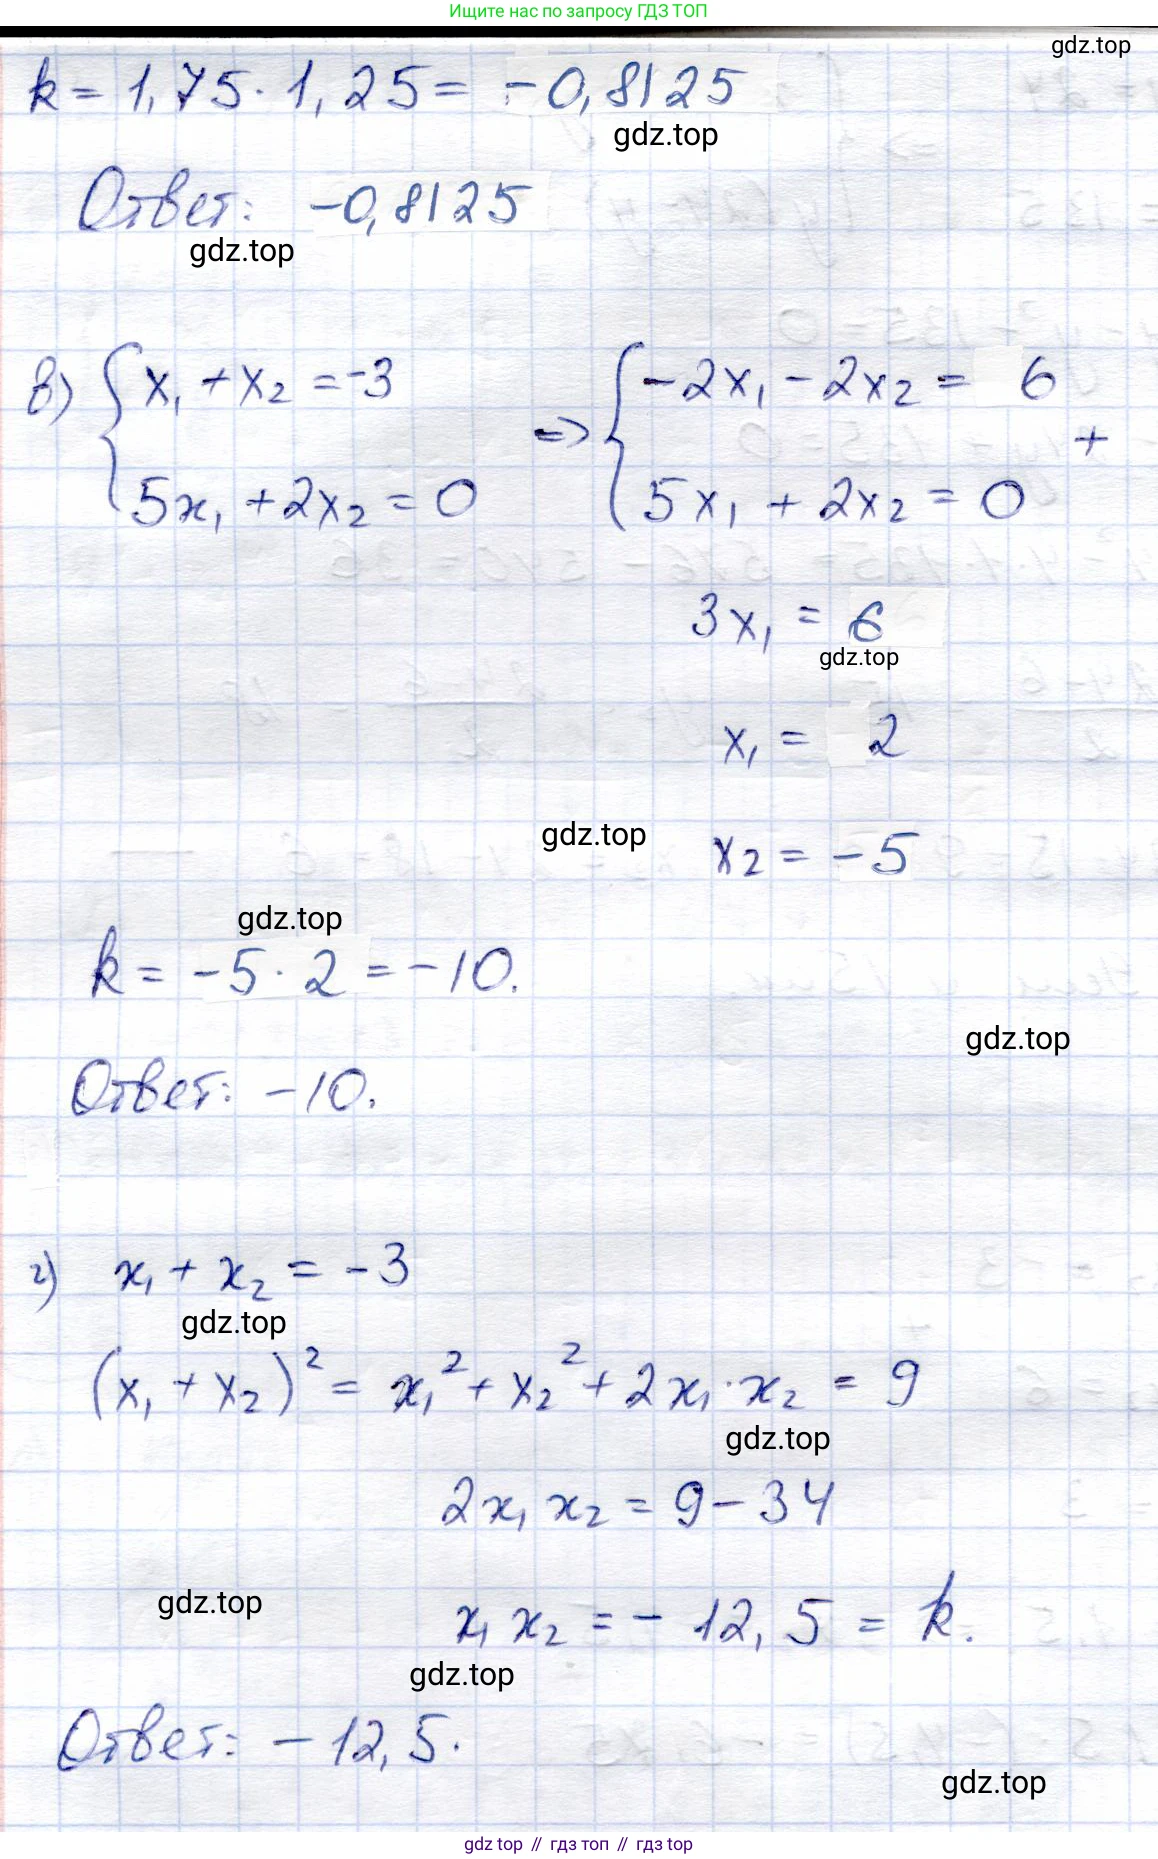 Ищите нас по запросу ГДЗ ТОП
gdz.top
k = 1,75 · 1,25 = -0,8125
gdz.top
Ответ: -0,8125
gdz.top
в) { x₁ + x₂ = -3 => { -2x₁ - 2x₂ = 6
+
5x₁ + 2x₂ = 0 5x₁ + 2x₂ = 0
3x₁ = 6
gdz.top
x₁ = 2
gdz.top
x₂ = -5
gdz.top
k = -5 · 2 = -10.
gdz.top
Ответ: -10.
г) x₁ + x₂ = -3
gdz.top
(x₁ + x₂)² = x₁² + x₂² + 2x₁ · x₂ = 9
gdz.top
2x₁ x₂ = 9 - 34
gdz.top
x₁ x₂ = -12,5 = k.
gdz.top
Ответ: -12,5.
gdz.top
gdz top // гдз топ // гдз top